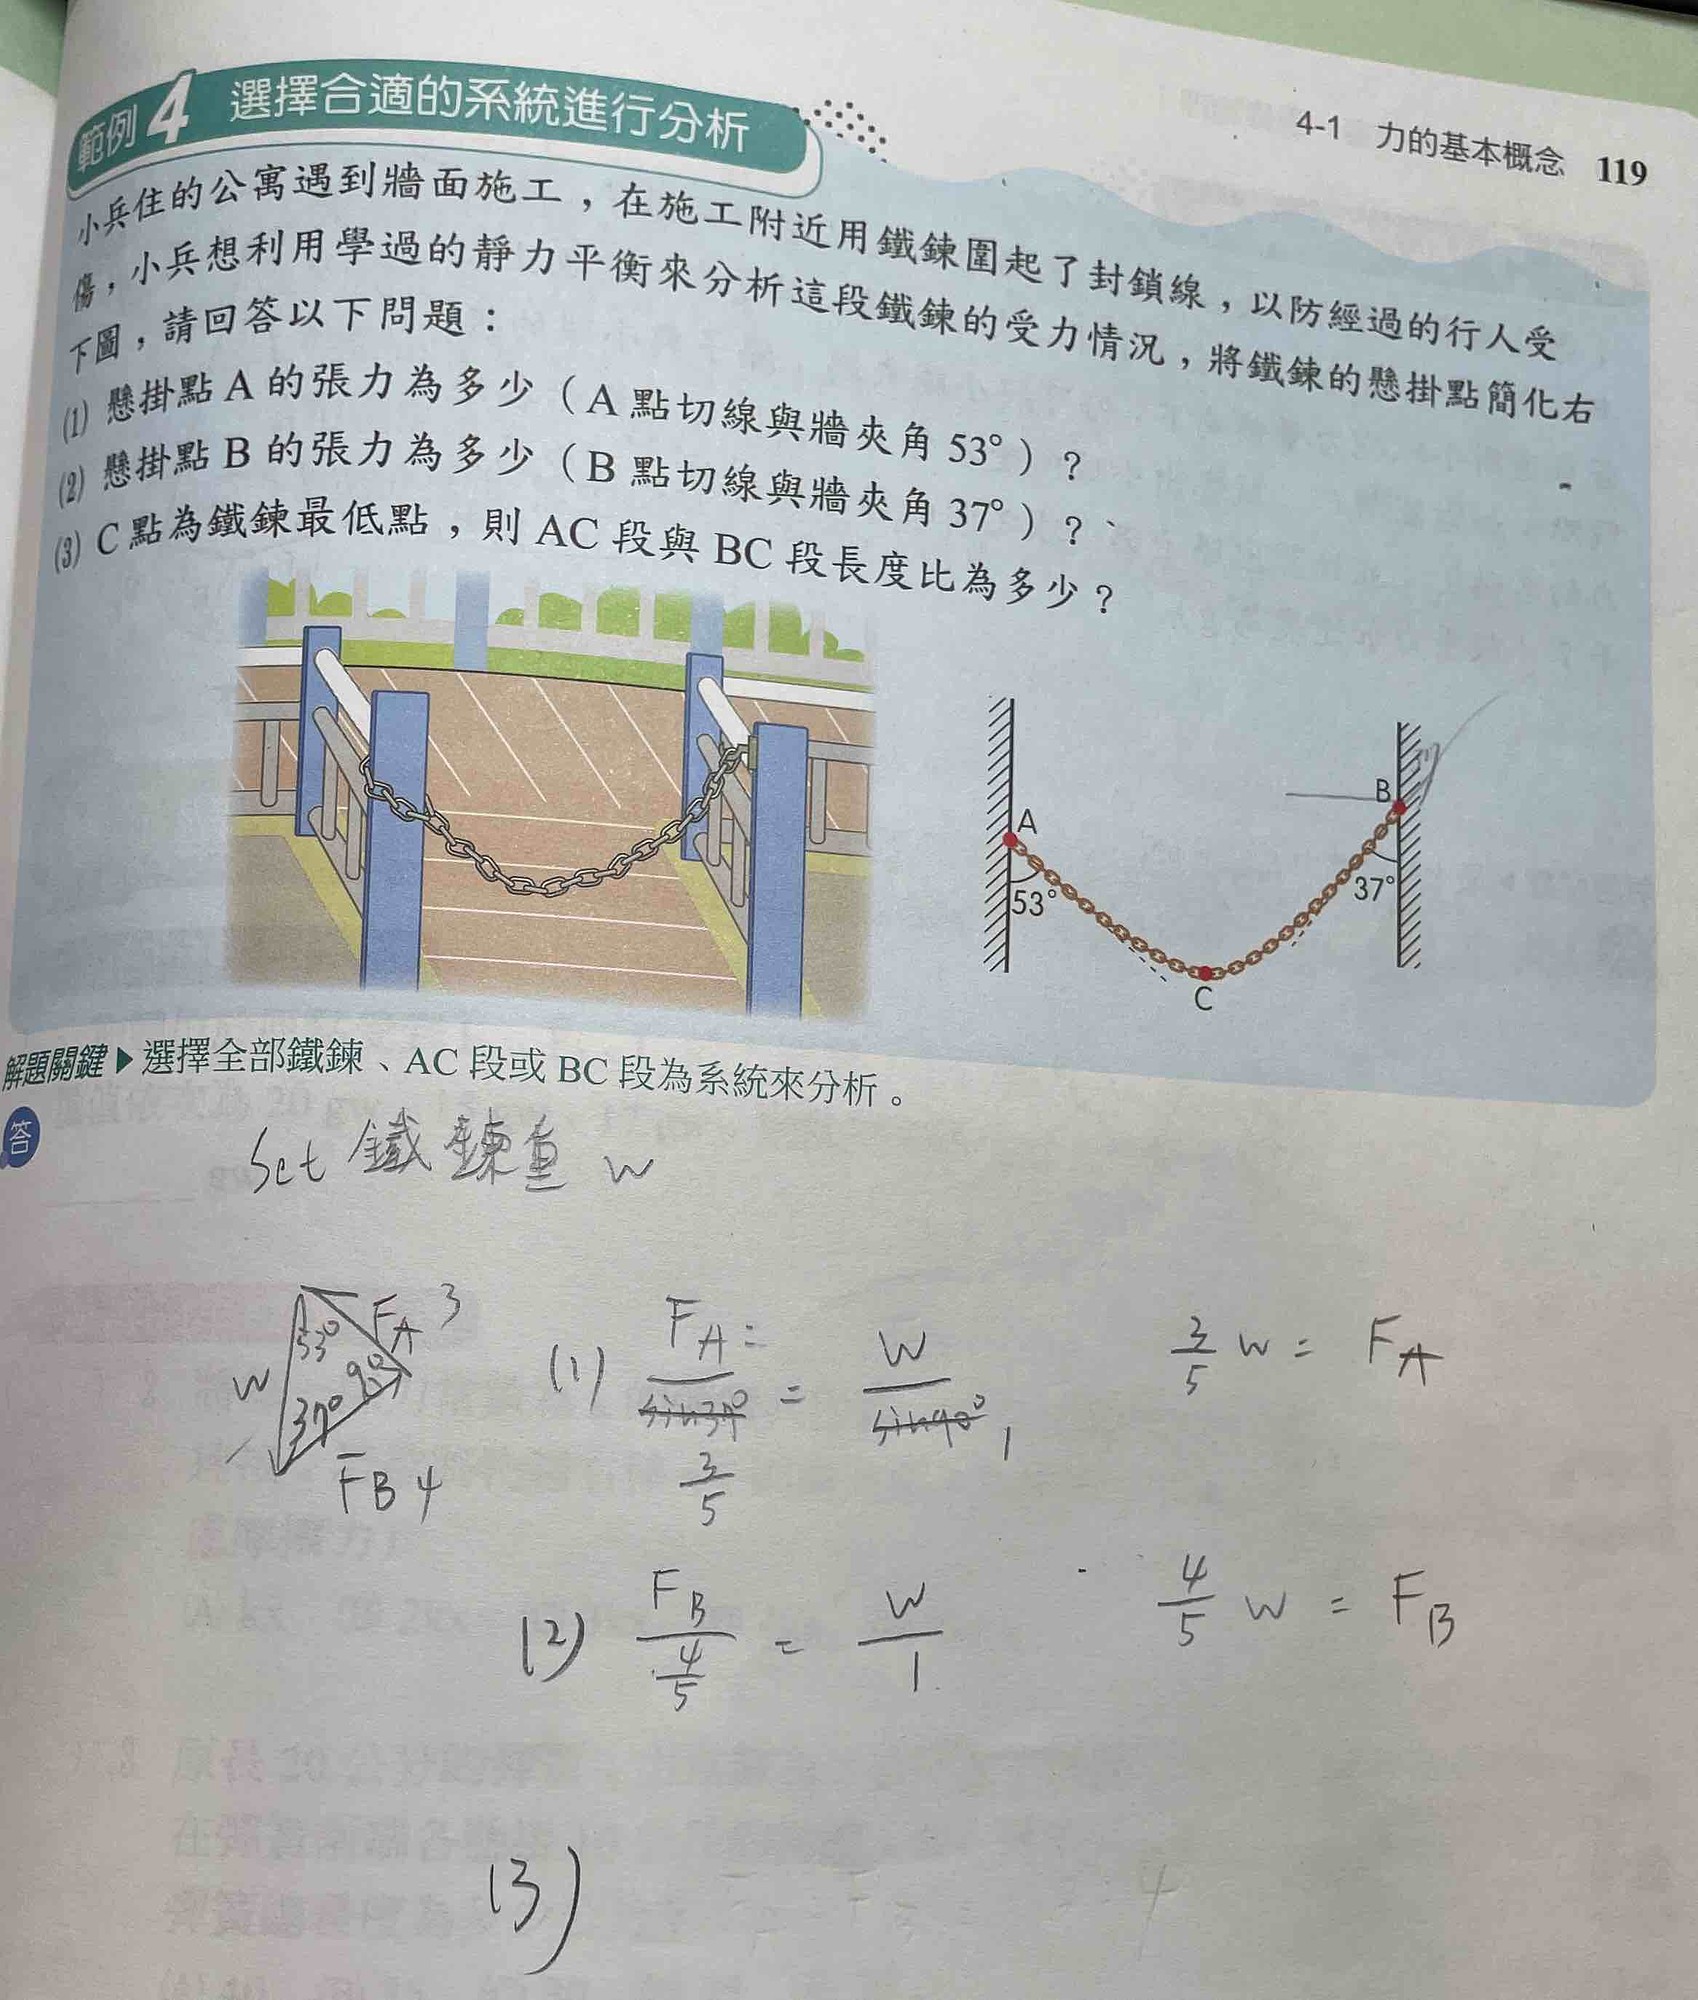 4-1 力的基本概念 119
範例 4 選擇合適的系統進行分析
小兵住的公寓遇到牆面施工，在施工附近用鐵鍊圍起了封鎖線，以防經過的行人受
傷，小兵想利用學過的靜力平衡來分析這段鐵鍊的受力情況，將鐵鍊的懸掛點簡化右
下圖，請回答以下問題：
(1) 懸掛點 A 的張力為多少（A 點切線與牆夾角 53°）？
(2) 懸掛點 B 的張力為多少（B 點切線與牆夾角 37°）？
(3) C 點為鐵鍊最低點，則 AC 段與 BC 段長度比為多少？
B
A
53°
37°
C
解題關鍵▶選擇全部鐵鍊、AC 段或 BC 段為系統來分析。
答
Set 鐵鍊重 w
W 53° FA 3
37° 90°
FB 4
(1) FA / sin37° 3/5 = W / sin90° 1
3/5 W = FA
(2) FB / 4/5 = W / 1
4/5 W = FB
(3)